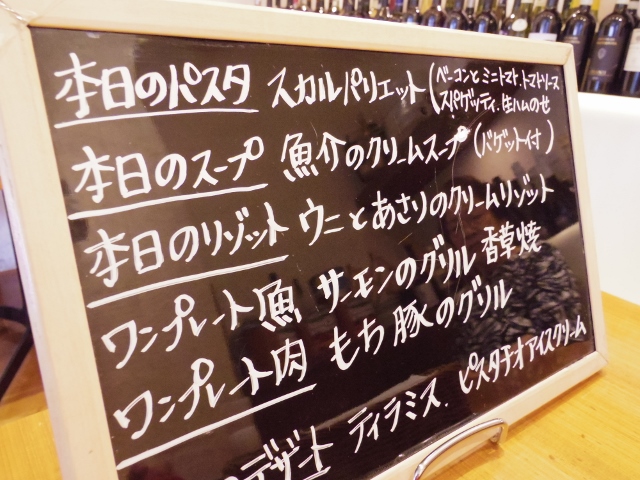 本日のパスタ スカルパリエット(ベーコンとミニトマト.トマトソース
スパゲッティ.生ハムのせ
本日のスープ 魚介のクリームスープ(バゲット付)
本日のリゾット ウニとあさりのクリームリゾット
ワンプレート魚 サーモンのグリル 香草焼
ワンプレート肉 もち豚のグリル
のデザート ティラミス.ピスタチオアイスクリーム